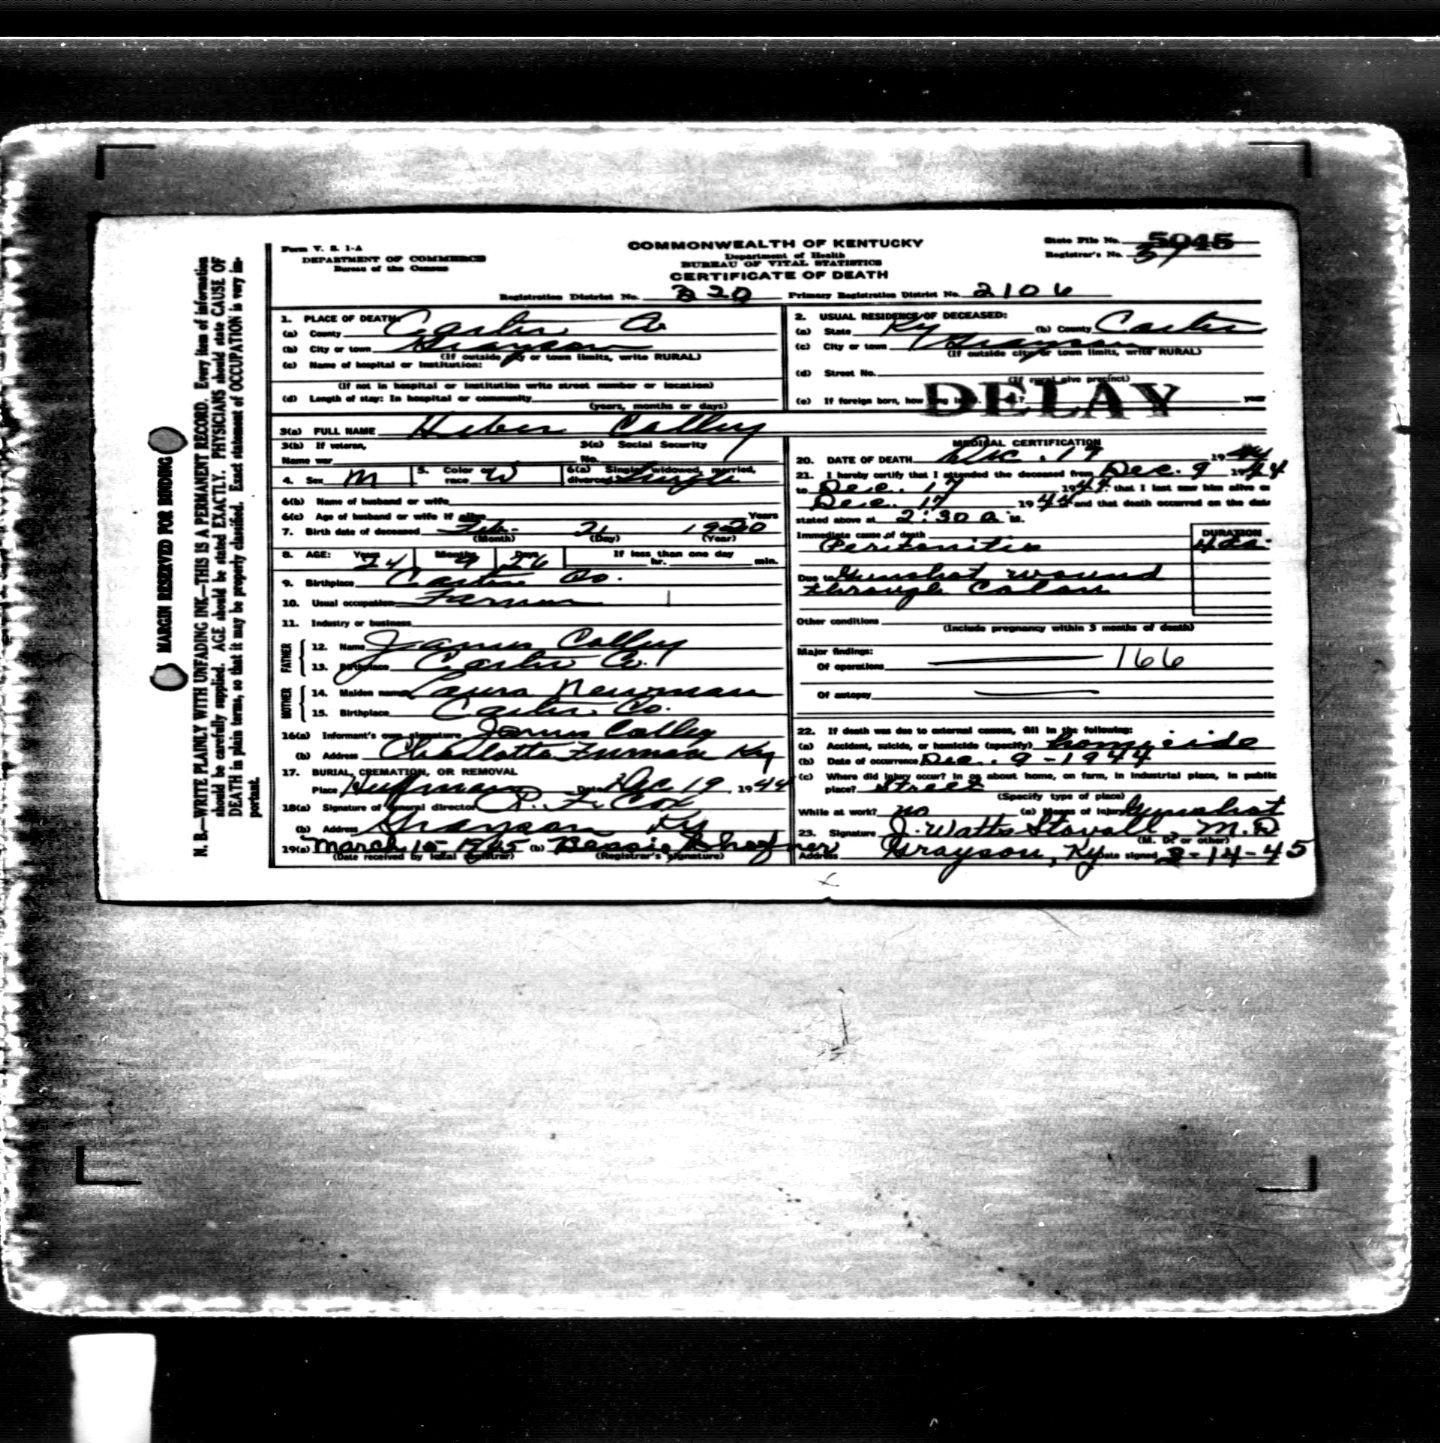 Form V. S. 1-A
DEPARTMENT OF COMMERCE
Bureau of the Census
COMMONWEALTH OF KENTUCKY
Department of Health
BUREAU OF VITAL STATISTICS
CERTIFICATE OF DEATH
State File No. 5045
Registrar's No. 37
Registration District No. 220 Primary Registration District No. 2106
MARGIN RESERVED FOR BINDING
N. B.—WRITE PLAINLY WITH UNFADING INK—THIS IS A PERMANENT RECORD. Every item of information
should be carefully supplied. AGE should be stated EXACTLY. PHYSICIANS should state CAUSE OF
DEATH in plain terms, so that it may be properly classified. Exact statement of OCCUPATION is very im-
portant.
1. PLACE OF DEATH:
(a) County Carter Co
(b) City or town Grayson
(If outside city or town limits, write RURAL)
(c) Name of hospital or institution:
(If not in hospital or institution write street number or location)
(d) Length of stay: In hospital or community
(years, months or days)
2. USUAL RESIDENCE OF DECEASED:
(a) State Ky (b) County Carter
(c) City or town Grayson
(If outside city or town limits, write RURAL)
(d) Street No.
(If rural give precinct)
(e) If foreign born, how long in U. S. A.? years
DELAY
3(a) FULL NAME Heber Colley
3(b) If veteran,
Name war
3(c) Social Security
No.
4. Sex M 5. Color or race W 6(a) Single, widowed, married, divorced Single
6(b) Name of husband or wife
6(c) Age of husband or wife if alive Years
7. Birth date of deceased Feb. 21 1920
(Month) (Day) (Year)
8. AGE: Years 24 Months 9 Days 26 If less than one day hr. min.
9. Birthplace Carter Co.
10. Usual occupation Farmer
11. Industry or business
FATHER
12. Name James Colley
13. Birthplace Carter Co.
MOTHER
14. Maiden name Laura Newman
15. Birthplace Carter Co.
16(a) Informant's own signature James Colley
(b) Address Charlotte Furnace Ky
17. BURIAL, CREMATION, OR REMOVAL
Place Huffman Date Dec 19, 1944
18(a) Signature of funeral director R. F. Cox
(b) Address Grayson Ky
19(a) March 15-1945 (b) Bessie
(Date received by local registrar) (Registrar's signature)
MEDICAL CERTIFICATION
20. DATE OF DEATH Dec. 17 1944
21. I hereby certify that I attended the deceased from Dec. 9 1944
to Dec. 17 1944 that I last saw him alive on
Dec. 17 1944 and that death occurred on the date
stated above at 2:30 a M.
Immediate cause of death DURATION
Peritonitis 4 da.
Due to Gunshot wound
through Colon
Other conditions
(Include pregnancy within 3 months of death)
Major findings:
Of operations 166
Of autopsy
22. If death was due to external causes, fill in the following:
(a) Accident, suicide, or homicide (specify) homicide
(b) Date of occurrence Dec. 9-1944
(c) Where did injury occur? In or about home, on farm, in industrial place, in public
place? Street
(Specify type of place)
While at work? no (e) Means of injury Gunshot
23. Signature J. Watts Stovall, M.D
(M. D. or other)
Address Grayson, Ky Date signed 3-14-45